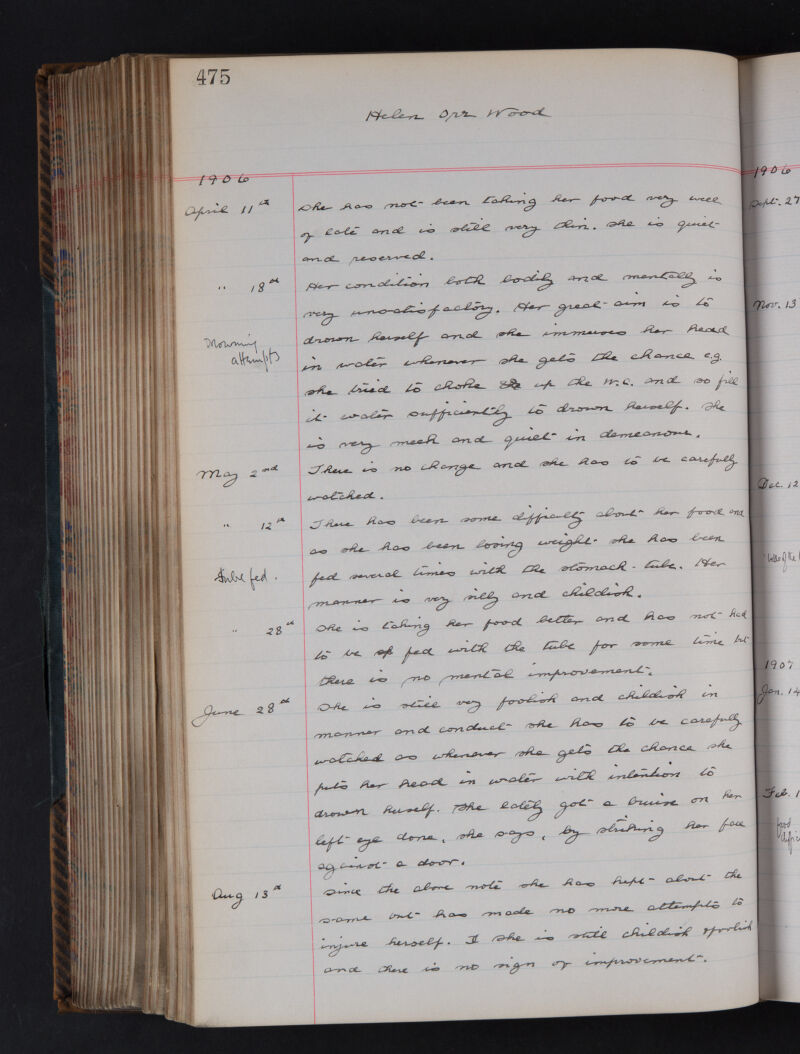 475
Helen Orr Wood
1906
April 11th She has not been taking her food very well
of late and is still very thin. She is quiet
and reserved.
" 18th Her condition both bodily and mentally is
very unsatisfactory. Her great aim is to
Drowning attempts drown herself and she immerses her head
in water whenever she gets the chance e.g.
she tried to choke up the W.C. and so fill
it water sufficiently to drown herself. She
is very meek and quiet in demeanour.
May 2nd There is no change and she has to be carefully
watched.
" 12th There has been some difficulty about her food and
as she has been losing weight she has been
Tube fed. fed several times with the stomach-tube. Her
manner is very silly and childish.
" 28th She is taking her food better and has not had
to be fed with the tube for some time but
there is no mental improvement.
June 28th She is still very foolish and childish in
manner and conduct she has to be carefully
watched as whenever she gets the chance she
puts her head in water with intention to
drown herself. She lately got a bruise on her
left eye done, she says, by striking her face
against a door.
Aug 13th Since the above note she has kept about the
same but has made no more attempts to
injure herself. She is still childish & foolish
and there is no sign of improvement.
1906
Sept. 27
Nov. 13
Dec. 12
1907
Jan. 14
Feb. 1
food